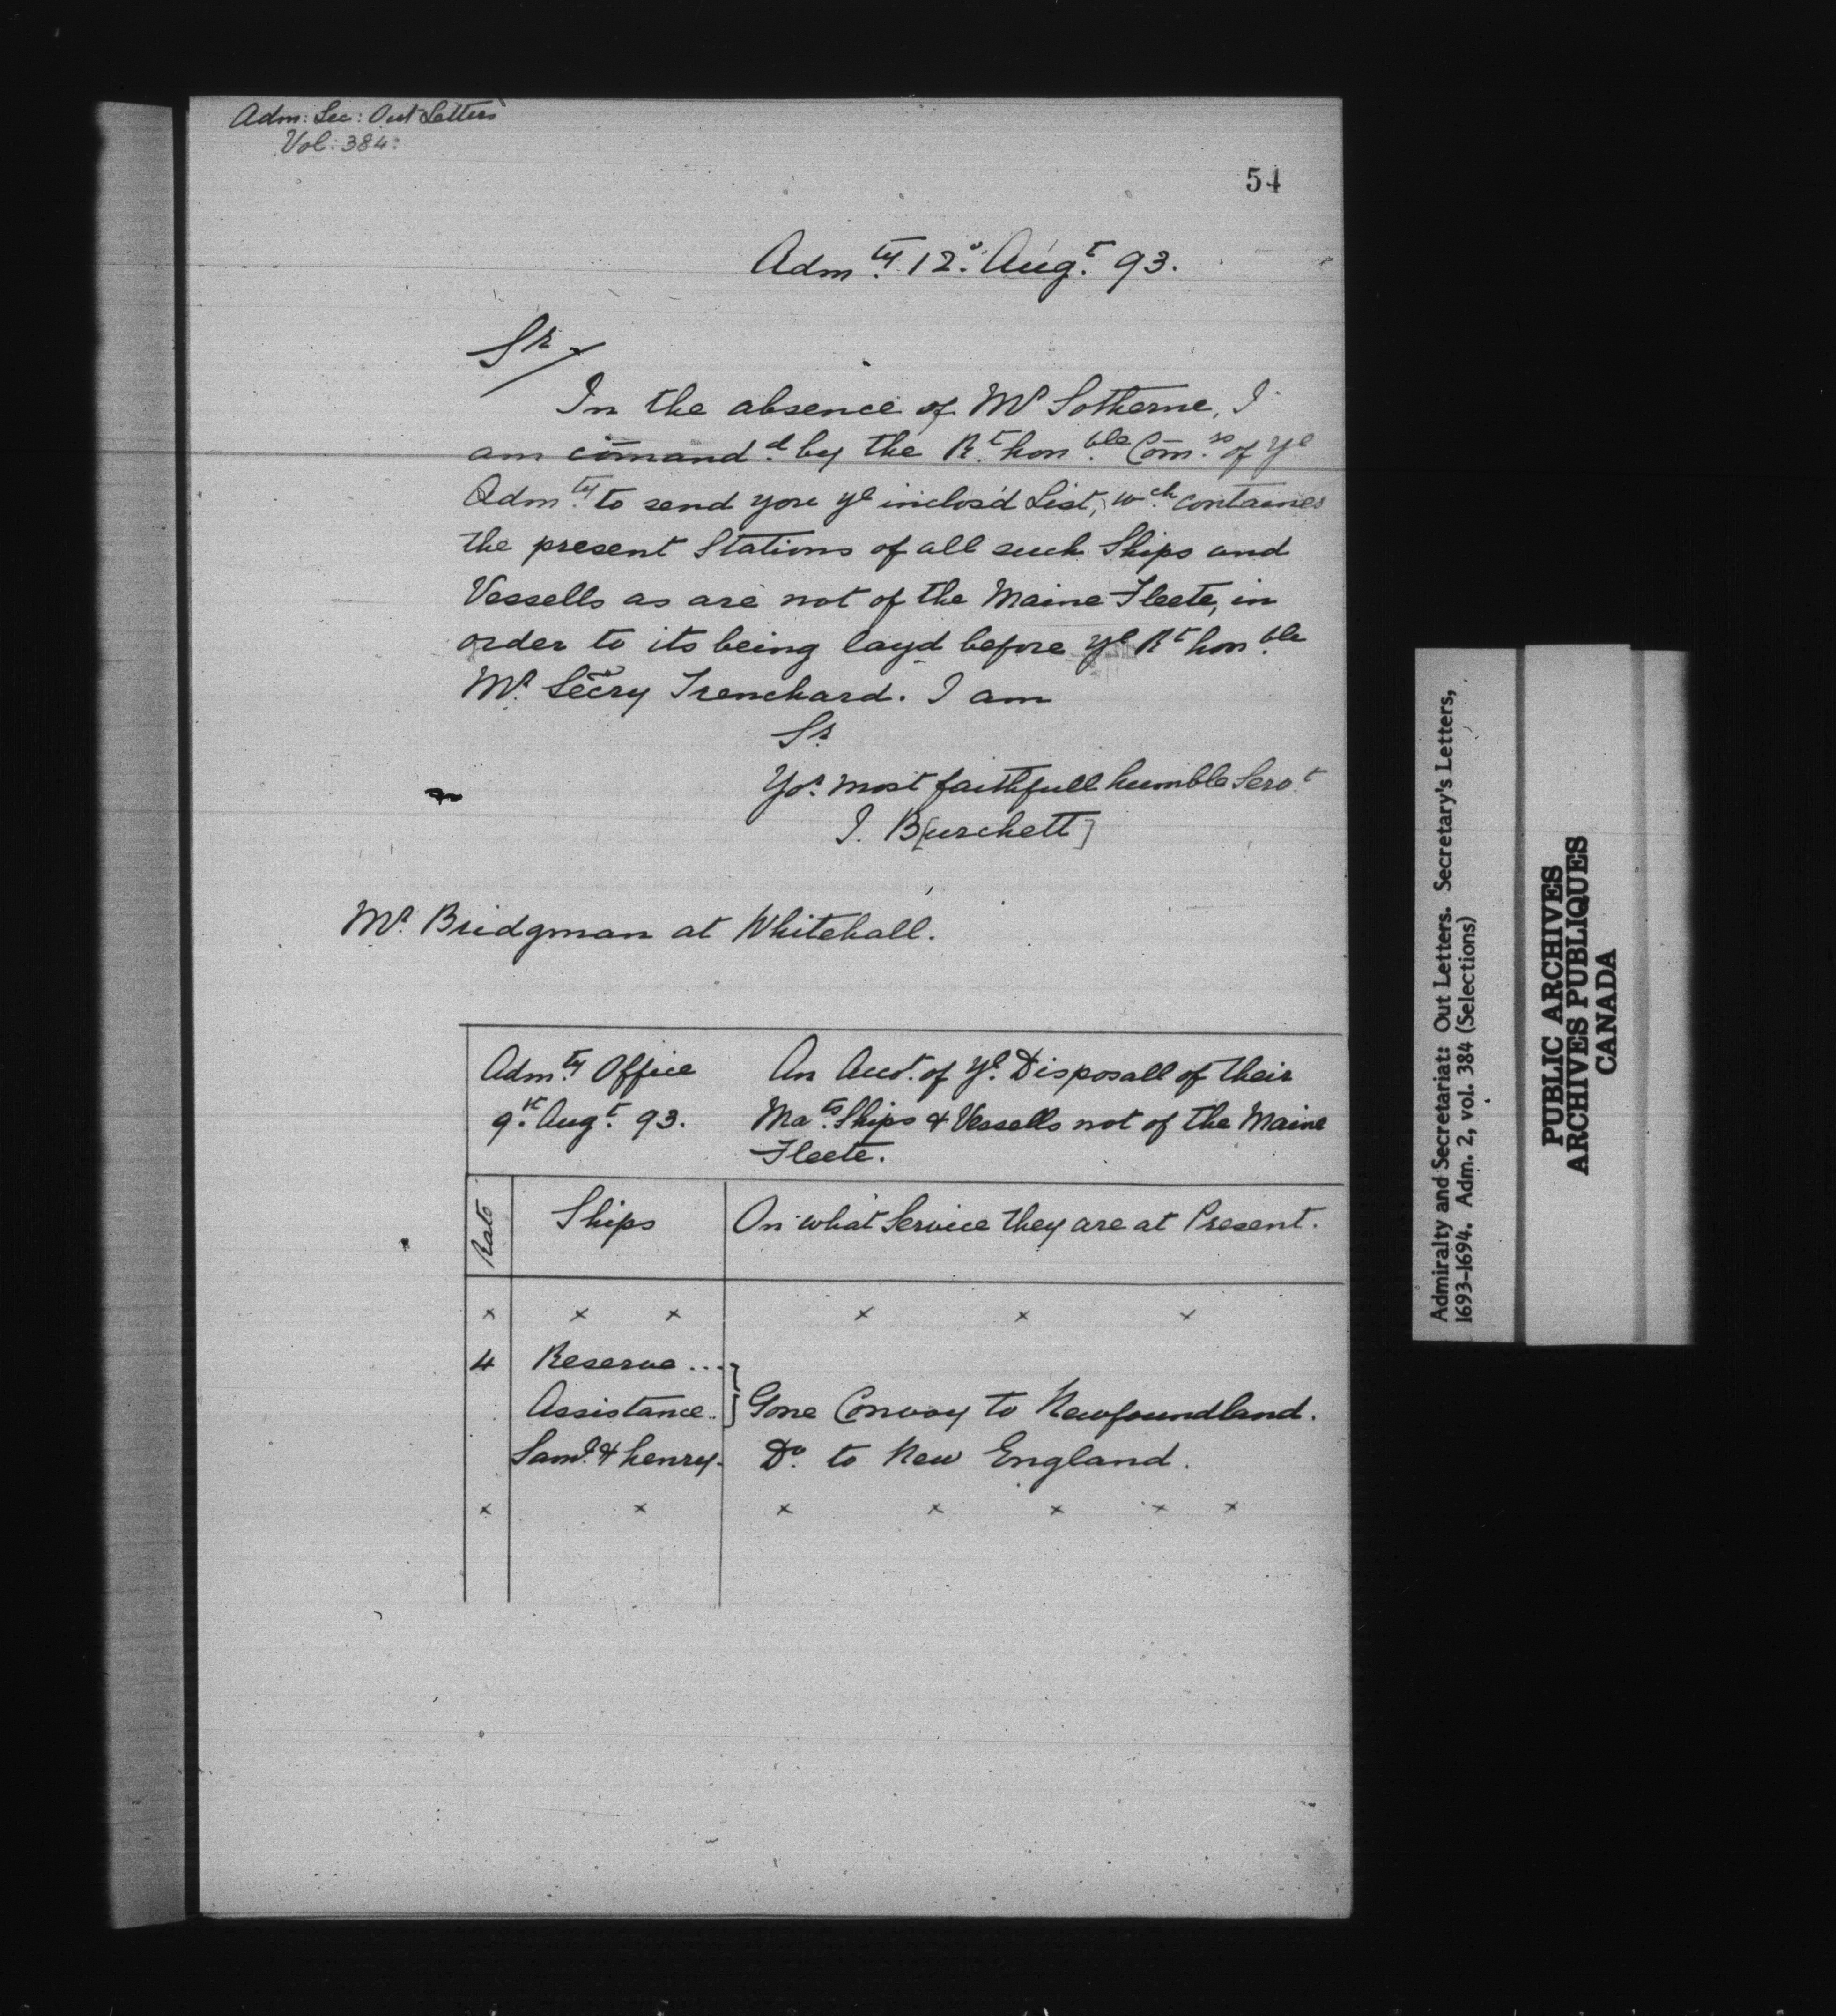 Adm: Sec: Out Letters
Vol: 384:
54
Admty. 12o. Augt. 93.
Sr/
In the absence of Mr Sotherne, I
am com̄andd. by the Rt. honble. Com̄rs. of ye
Admty. to send you ye inclos'd List, wch. containes
the present Stations of all such Ships and
Vessells as are not of the Maine Fleete, in
order to its being layd before ye Rt honble.
Mr. Secry Trenchard. I am
Sr.
Yor. most faithfull humble Servt.
J. B[urchett]
Mr. Bridgman at Whitehall.
Admty. Office
9th. Augt. 93.
An Accot. of ye. Disposall of their
Mats. Ships & Vessells not of the Maine
Fleete.
Rate
Ships
On what Service they are at Present.
x x x x x x
4 Reserve ...
Assistance.. } Gone Convoy to Newfoundland.
Saml. & henry. Do. to New England.
x x x x x x x
Admiralty and Secretariat: Out Letters. Secretary's Letters,
1693-1694. Adm. 2, vol. 384 (Selections)
PUBLIC ARCHIVES
ARCHIVES PUBLIQUES
CANADA